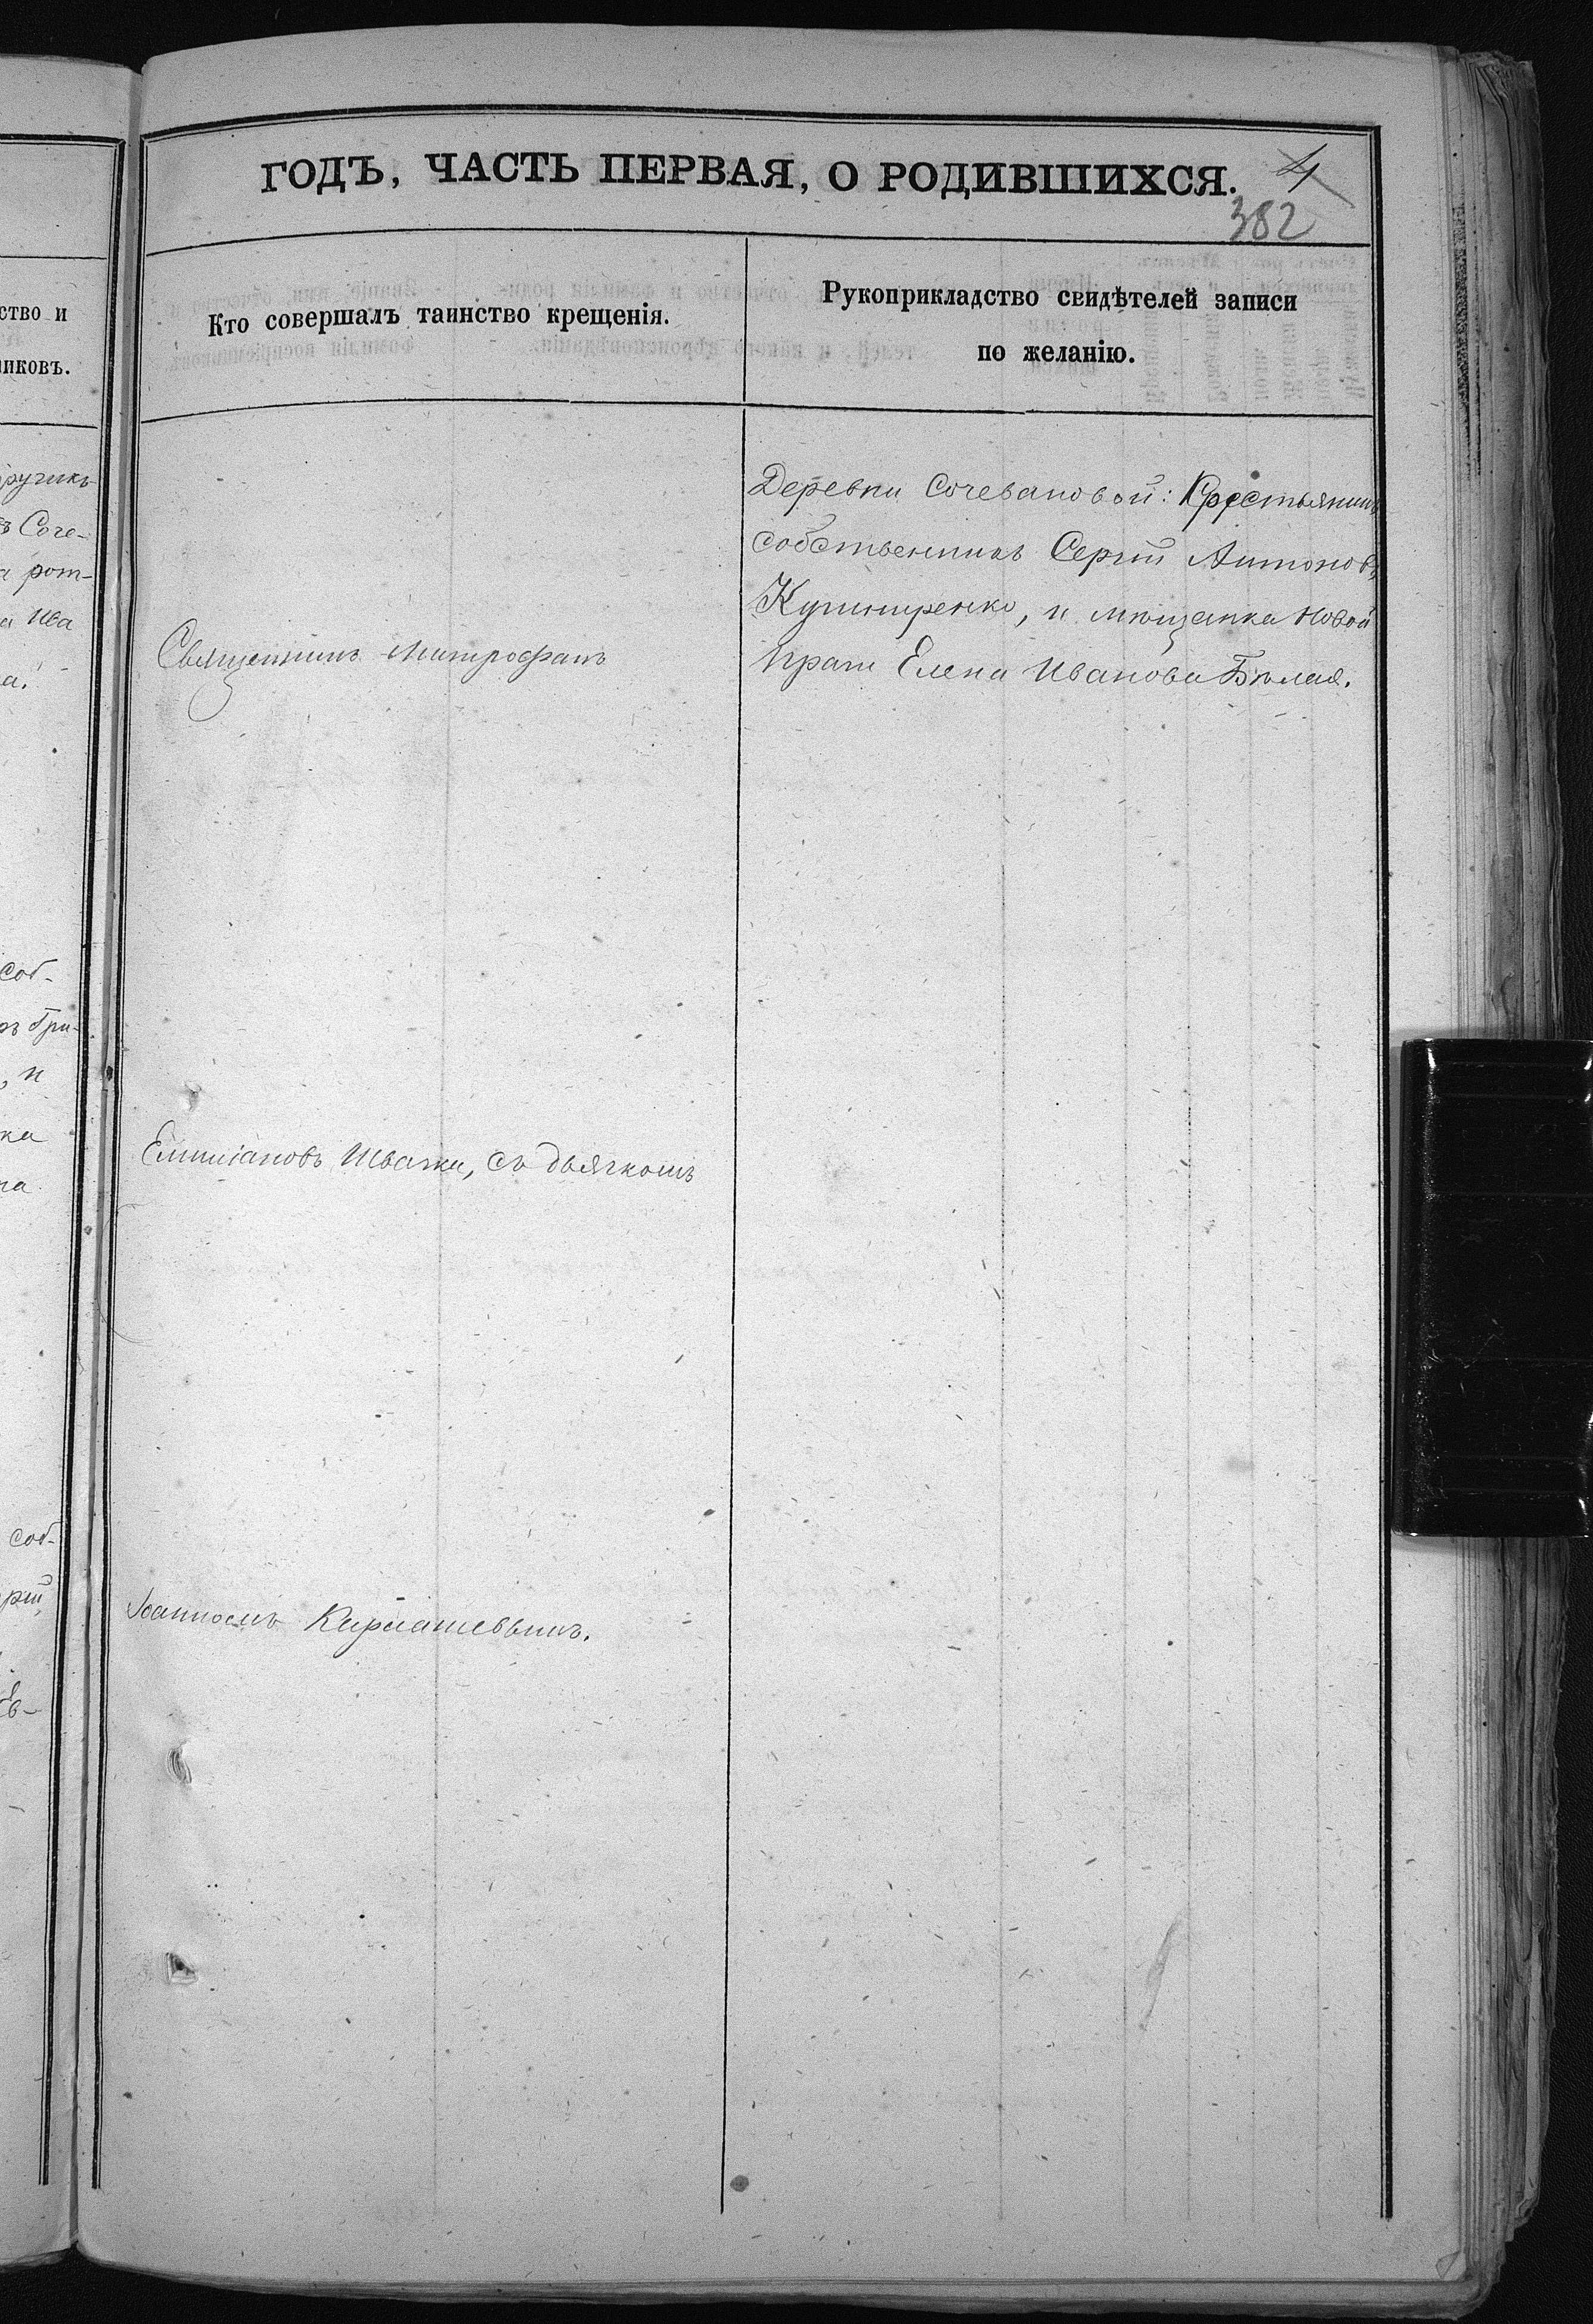 ГОДЪ, ЧАСТЬ ПЕРВАЯ, О РОДИВШИХСЯ. 4
382
ство и
никовъ.
Кто совершалъ таинство крещенія.
Рукоприкладство свидѣтелей записи
по желанію.
ручикъ
ъ Соче-
а рот-
а Ива
а.
Деревни Сочевановой: Крестьянинъ
собственникъ Сергій Антоновъ
и мѣщанка Новой
Праги Елена Иванова Бѣлая.
Священникъ Митрофанъ
соб-
ъ Гри-
, и
ка
на
Емиліановъ Ивашки, съ дьячкомъ
соб-
рій
Ев-
Іоанномъ Карпашевымъ.